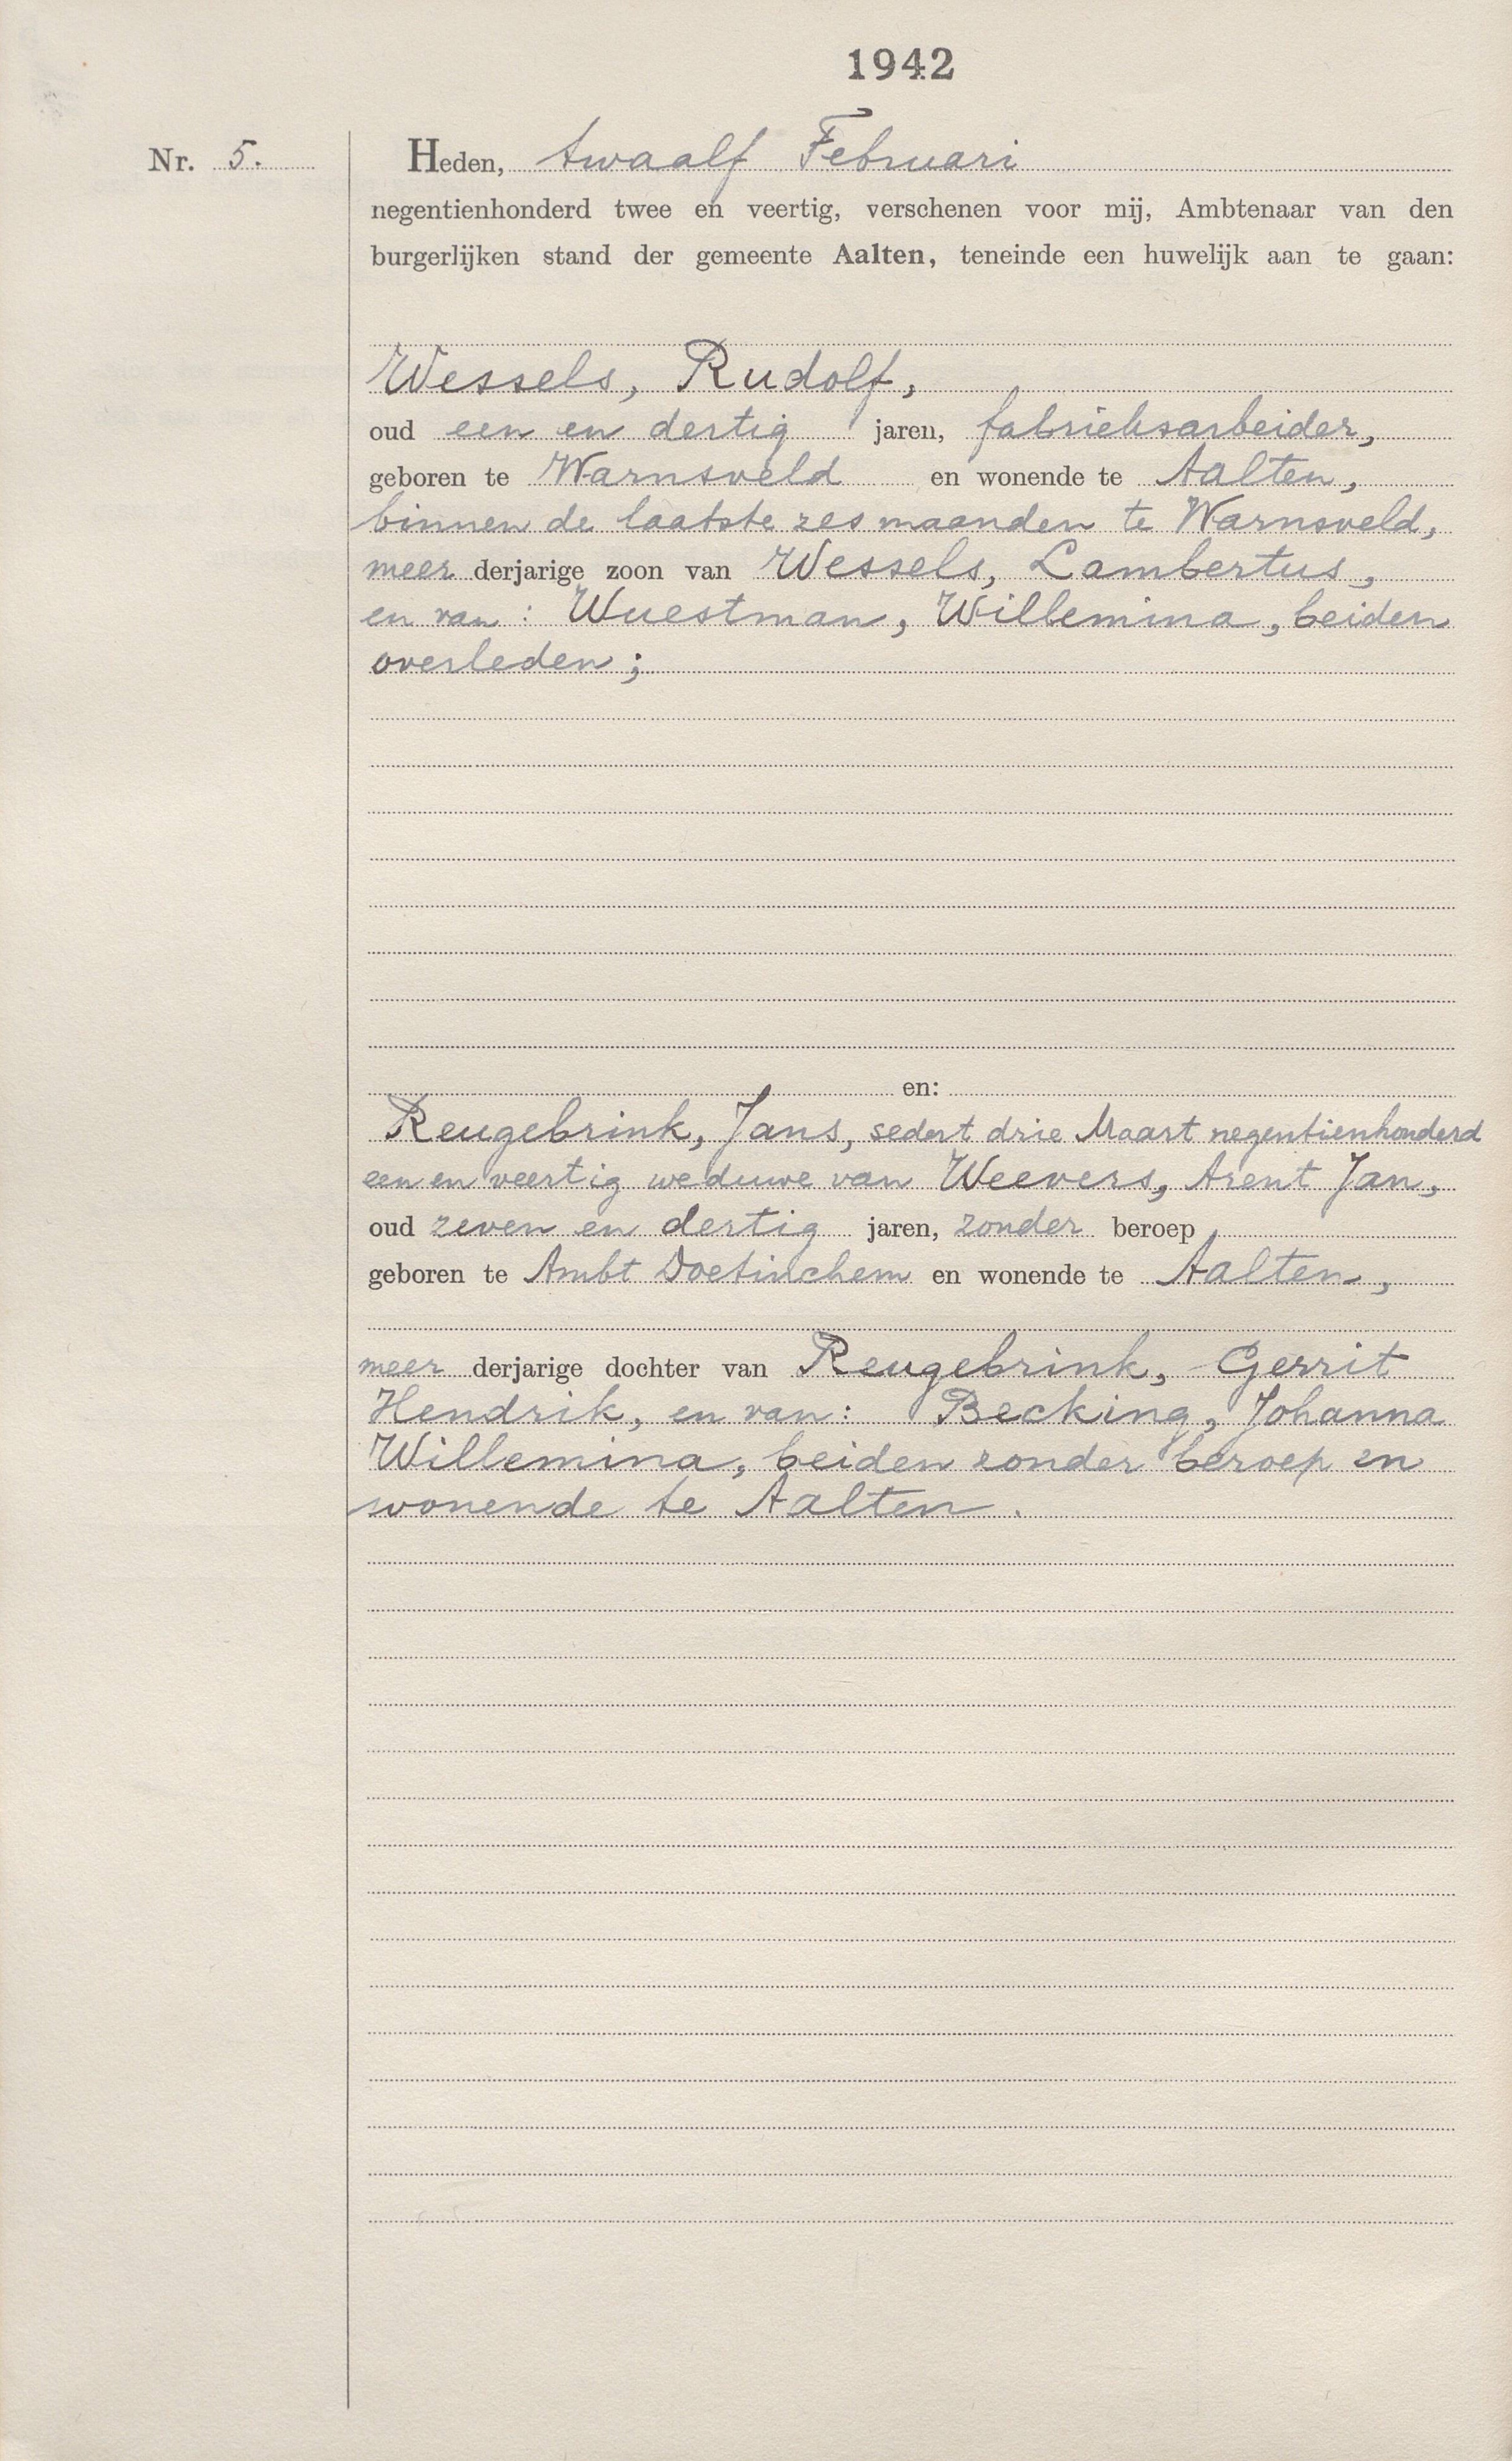 1942
Nr. 5.
Heden, twaalf Februari
negentienhonderd twee en veertig, verschenen voor mij, Ambtenaar van den
burgerlijken stand der gemeente Aalten, teneinde een huwelijk aan te gaan:
Wessels, Rudolf,
oud een en dertig jaren, fabrieksarbeider,
geboren te Warnsveld en wonende te Aalten,
binnen de laatste zes maanden te Warnsveld,
meer derjarige zoon van Wessels, Lambertus,
en van: Wuestman, Willemina, beiden
overleden;
en:
Reugebrink, Jans, sedert drie Maart negentienhonderd
een en veertig weduwe van Weevers, Arent Jan,
oud zeven en dertig jaren, zonder beroep
geboren te Ambt Doetinchem en wonende te Aalten,
meer derjarige dochter van Reugebrink, Gerrit
Hendrik, en van: Becking, Johanna
Willemina, beiden zonder beroep en
wonende te Aalten.